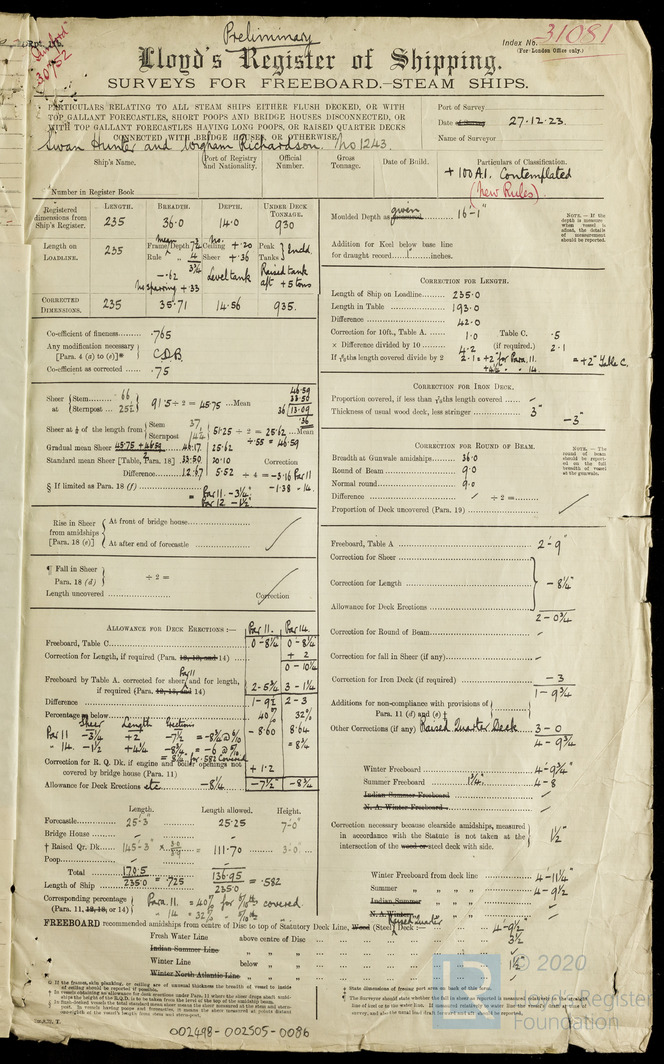 Preliminary
Index No. 31081
(For London Office only.)
Lloyd's Register of Shipping.
SURVEYS FOR FREEBOARD.—STEAM SHIPS.
PARTICULARS RELATING TO ALL STEAM SHIPS EITHER FLUSH DECKED, OR WITH
TOP GALLANT FORECASTLES, SHORT POOPS AND BRIDGE HOUSES DISCONNECTED, OR
WITH TOP GALLANT FORECASTLES HAVING LONG POOPS, OR RAISED QUARTER DECKS
CONNECTED WITH BRIDGE HOUSES, OR OTHERWISE.
Port of Survey
Date of Survey 27.12.23.
Name of Surveyor
Swan Hunter and Wigham Richardson. No 1243.
Ship's Name. Port of Registry and Nationality. Official Number. Gross Tonnage. Date of Build. Particulars of Classification.
+ 100 A.1. Contemplated
(New Rules)
Number in Register Book
Registered dimensions from Ship's Register. LENGTH. 235 BREADTH. 36.0 DEPTH. 14.0 UNDER DECK TONNAGE. 930
Length on LOADLINE. 235 Frame Depth Ceiling + .20 Peak Tanks
Rule Sheer + .36
-.62 Level tank Raised tank
No sparring + .33 aft + 5 tons
CORRECTED DIMENSIONS. 235 35.71 14.56 935.
Moulded Depth as given 16-1"
Addition for Keel below base line
for draught record inches.
NOTE.—If the depth is measure when vessel is afloat, the details of measurement should be reported.
Co-efficient of fineness .765
Any modification necessary [Para. 4 (a) to (e)]* C.D.B.
Co-efficient as corrected .75
CORRECTION FOR LENGTH.
Length of Ship on Loadline 235.0
Length in Table 193.0
Difference 42.0
Correction for 10ft., Table A. 1.0 Table C. .5
× Difference divided by 10 4.2 (if required.) 2.1
If 6/10ths length covered divide by 2 2.1 = +2" for Para. 11. = +2" Table C.
+4¼ " " 14.
Sheer at Stem 66
Sternpost 25½ 91.5 ÷ 2 = 45.75 Mean
Sheer at ⅛ of the length from Stem 37
Sternpost 14¼ 51.25 ÷ 2 = 25.62 Mean
÷.55 = 46.59
Gradual mean Sheer 45.75 + 46.59 46.17 25.62
Standard mean Sheer [Table, Para. 18] 33.50 20.10 Correction
Difference 12.67 5.52 ÷ 4 = -3.16 Par 11
§ If limited as Para. 18 (f) -1.38 " 14.
= Par 11. -3¼"
Par 12 -1½"
CORRECTION FOR IRON DECK.
Proportion covered, if less than 7/10ths length covered
Thickness of usual wood deck, less stringer 3" -3"
CORRECTION FOR ROUND OF BEAM.
Breadth at Gunwale amidships 36.0
Round of Beam 9.0
Normal round 9.0
Difference ÷ 2 =
Proportion of Deck uncovered (Para. 19)
NOTE.—The round of beam should be reported on the full breadth of vessel at the gunwale.
Rise in Sheer from amidships [Para. 18 (e)] At front of bridge house
At after end of forecastle
¶ Fall in Sheer
Para. 18 (d) ÷ 2 =
Length uncovered Correction
Freeboard, Table A 2-9"
Correction for Sheer
Correction for Length -8¼"
Allowance for Deck Erections
2-0¾
Correction for Round of Beam
Correction for fall in Sheer (if any)
Correction for Iron Deck (if required) -3
1-9¾
Additions for non-compliance with provisions of
Para. 11 (d) and (e) †
Other Corrections (if any) Raised Quarter Deck 3-0
4-9¾
Winter Freeboard 4-9¾"
Summer Freeboard 1¾" 4-8
Indian Summer Freeboard
N. A. Winter Freeboard
Correction necessary because clearside amidships, measured
in accordance with the Statute is not taken at the
intersection of the wood or steel deck with side. 1½"
Winter Freeboard from deck line 4-11¼"
Summer " " " " 4-9½
Indian Summer " " "
N.A. Winter " " "
ALLOWANCE FOR DECK ERECTIONS :— Par 11. Par 14.
Freeboard, Table C 0-8¼ 0-8¼
Correction for Length, if required (Para. 12, 13, and 14) + 2
0-10¼
Freeboard by Table A. corrected for sheer and for length, if required (Para. 12, 13, and 14) Par 11 2-5¾ 3-1¼
Difference 1-9½ 2-3
Percentage as below 40% 32%
Sheer Length Erections - 8.60 8.64
Par 11 -3¼ +2 -7½ = -8¾ @ 6/10
" 14. -1½ +4¼ -8¾ = -6 @ 5/10 = 8¾
= 8¼ for .582 Covered
Correction for R. Q. Dk. if engine and boiler openings not
covered by bridge house (Para. 11) + 1.2
Allowance for Deck Erections etc -8¼ -7½" -8¾
Length. Length allowed. Height.
Forecastle 25-3" 25.25 7-0"
Bridge House
† Raised Qr. Dk. 145-3" × 111.70 3-0"
Poop
Total 170.5 136.95
Length of Ship 235.0 = .725 235.0 = .582
Corresponding percentage Para. 11. = 40% for 6/10ths covered.
(Para. 11, 12, 13, or 14) " 14 = 32%
FREEBOARD recommended amidships from centre of Disc to top of Statutory Deck Line, Wood (Steel) Raised Quarter Deck :— 4-9½"
Fresh Water Line above centre of Disc 3½
Indian Summer Line " "
Winter Line below " 1½"
Winter North Atlantic Line " "
© 2020
Lloyd's Register
Foundation
002498-002505-0086